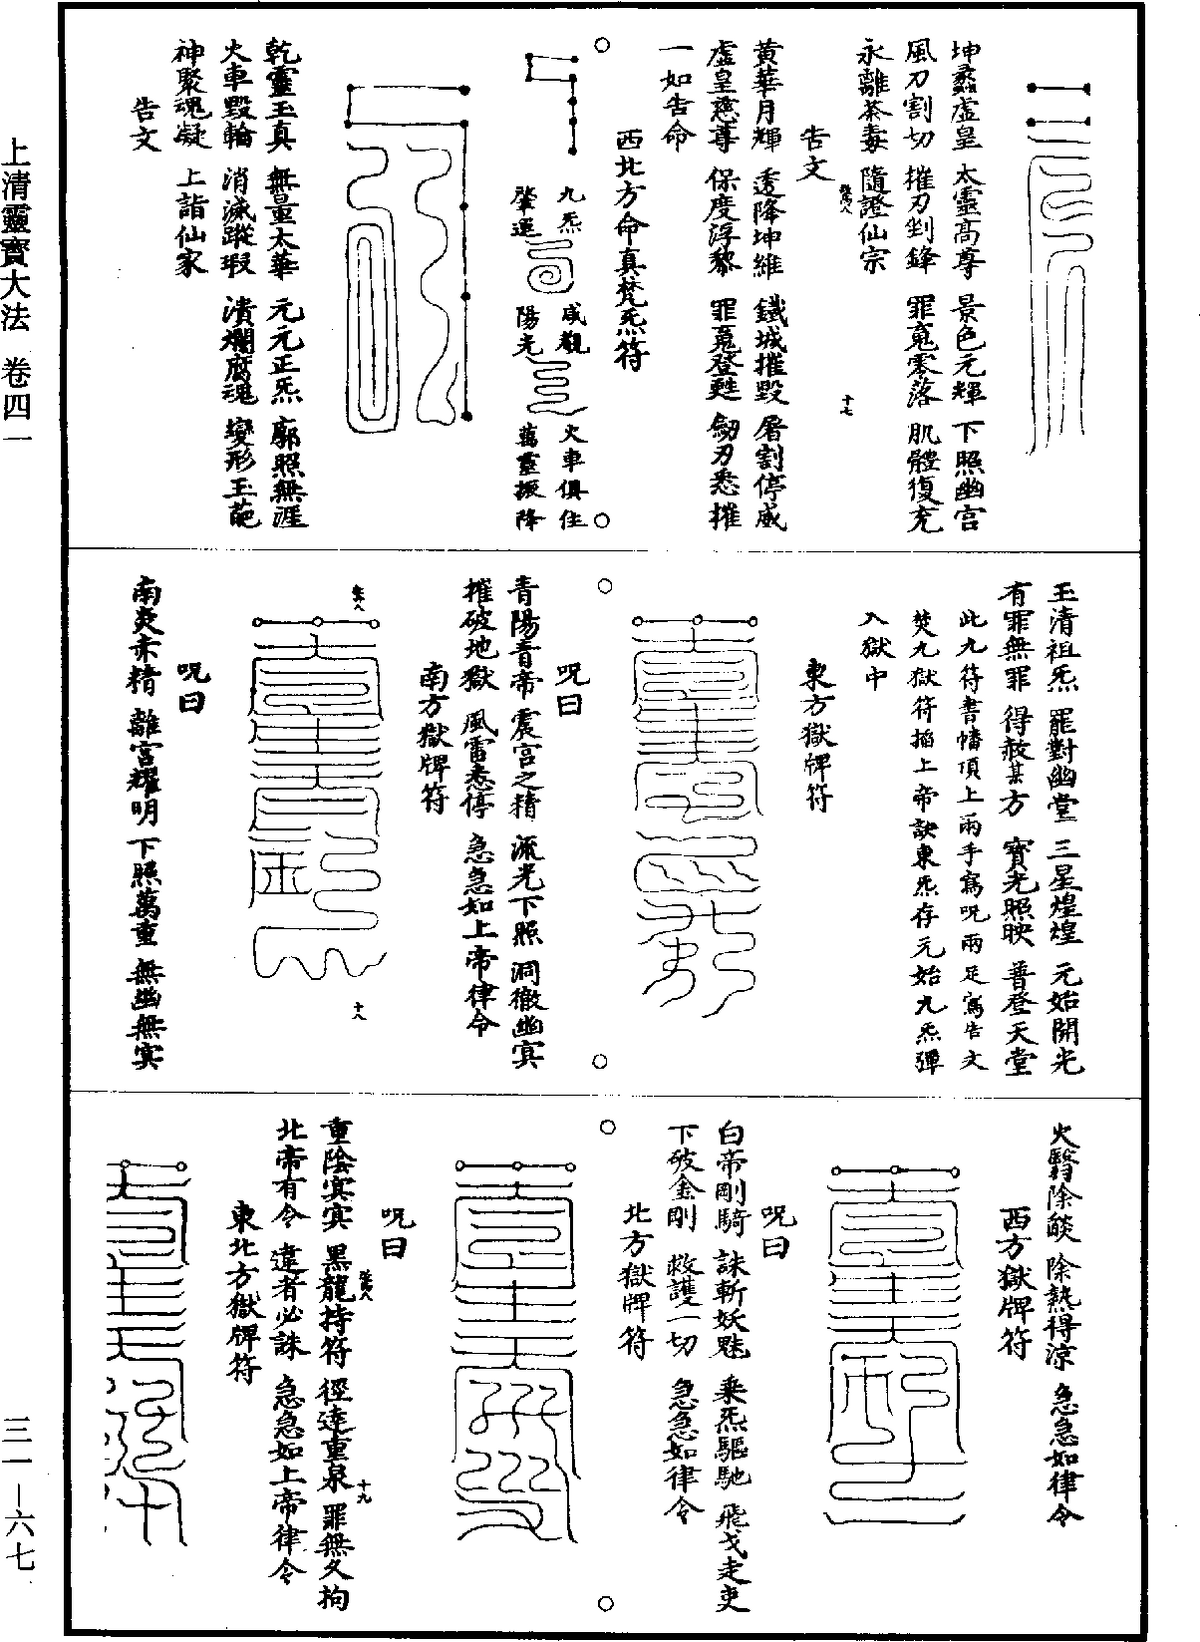 坤彞虛皇 太靈高尊 景色元輝 下照幽宫
風刀割切 摧刃剉鋒 罪䰟零落 肌體復充
永離荼毒 隨證仙宗
告文
十七
黃華月輝 透降坤維 鐵城摧毀 屠割停威
虛皇慈尊 保度浮黎 罪䰟登甦 劒刃悉摧
一如告命
西北方命真梵炁符
九炁
肇運
咸觀
陽光
火車俱住
萬靈振降
乾靈玉真 無量太華 元元正炁 廓照無涯
火車毀輪 消滅蹤瑕 潰爛腐魂 變形玉葩
神聚魂凝 上詣仙家
告文
玉清祖炁 罷對幽堂 三星煌煌 元始開光
有罪無罪 得赦某方 寶光照映 普登天堂
此九符書幡頂上兩手寫呪兩足寫告文
焚九獄符掐上帝訣東炁存元始九炁彈
入獄中
東方獄牌符
呪曰
青陽青帝 震宫之精 流光下照 洞徹幽冥
摧破地獄 風雷悉停 急急如上帝律令
南方獄牌符
十八
呪曰
南炎赤精 離宫耀明 下照萬重 無幽無冥
火翳除燄 除熱得涼 急急如律令
西方獄牌符
呪曰
白帝剛騎 誅斬妖魅 乘炁驅馳 飛戈走吏
下破金剛 救護一切 急急如律令
北方獄牌符
呪曰
重陰冥冥 黑龍持符 徑達重泉 罪無久拘
十九
北帝有令 違者必誅 急急如上帝律令
東北方獄牌符
上清靈寶大法 卷四一
三一—六七